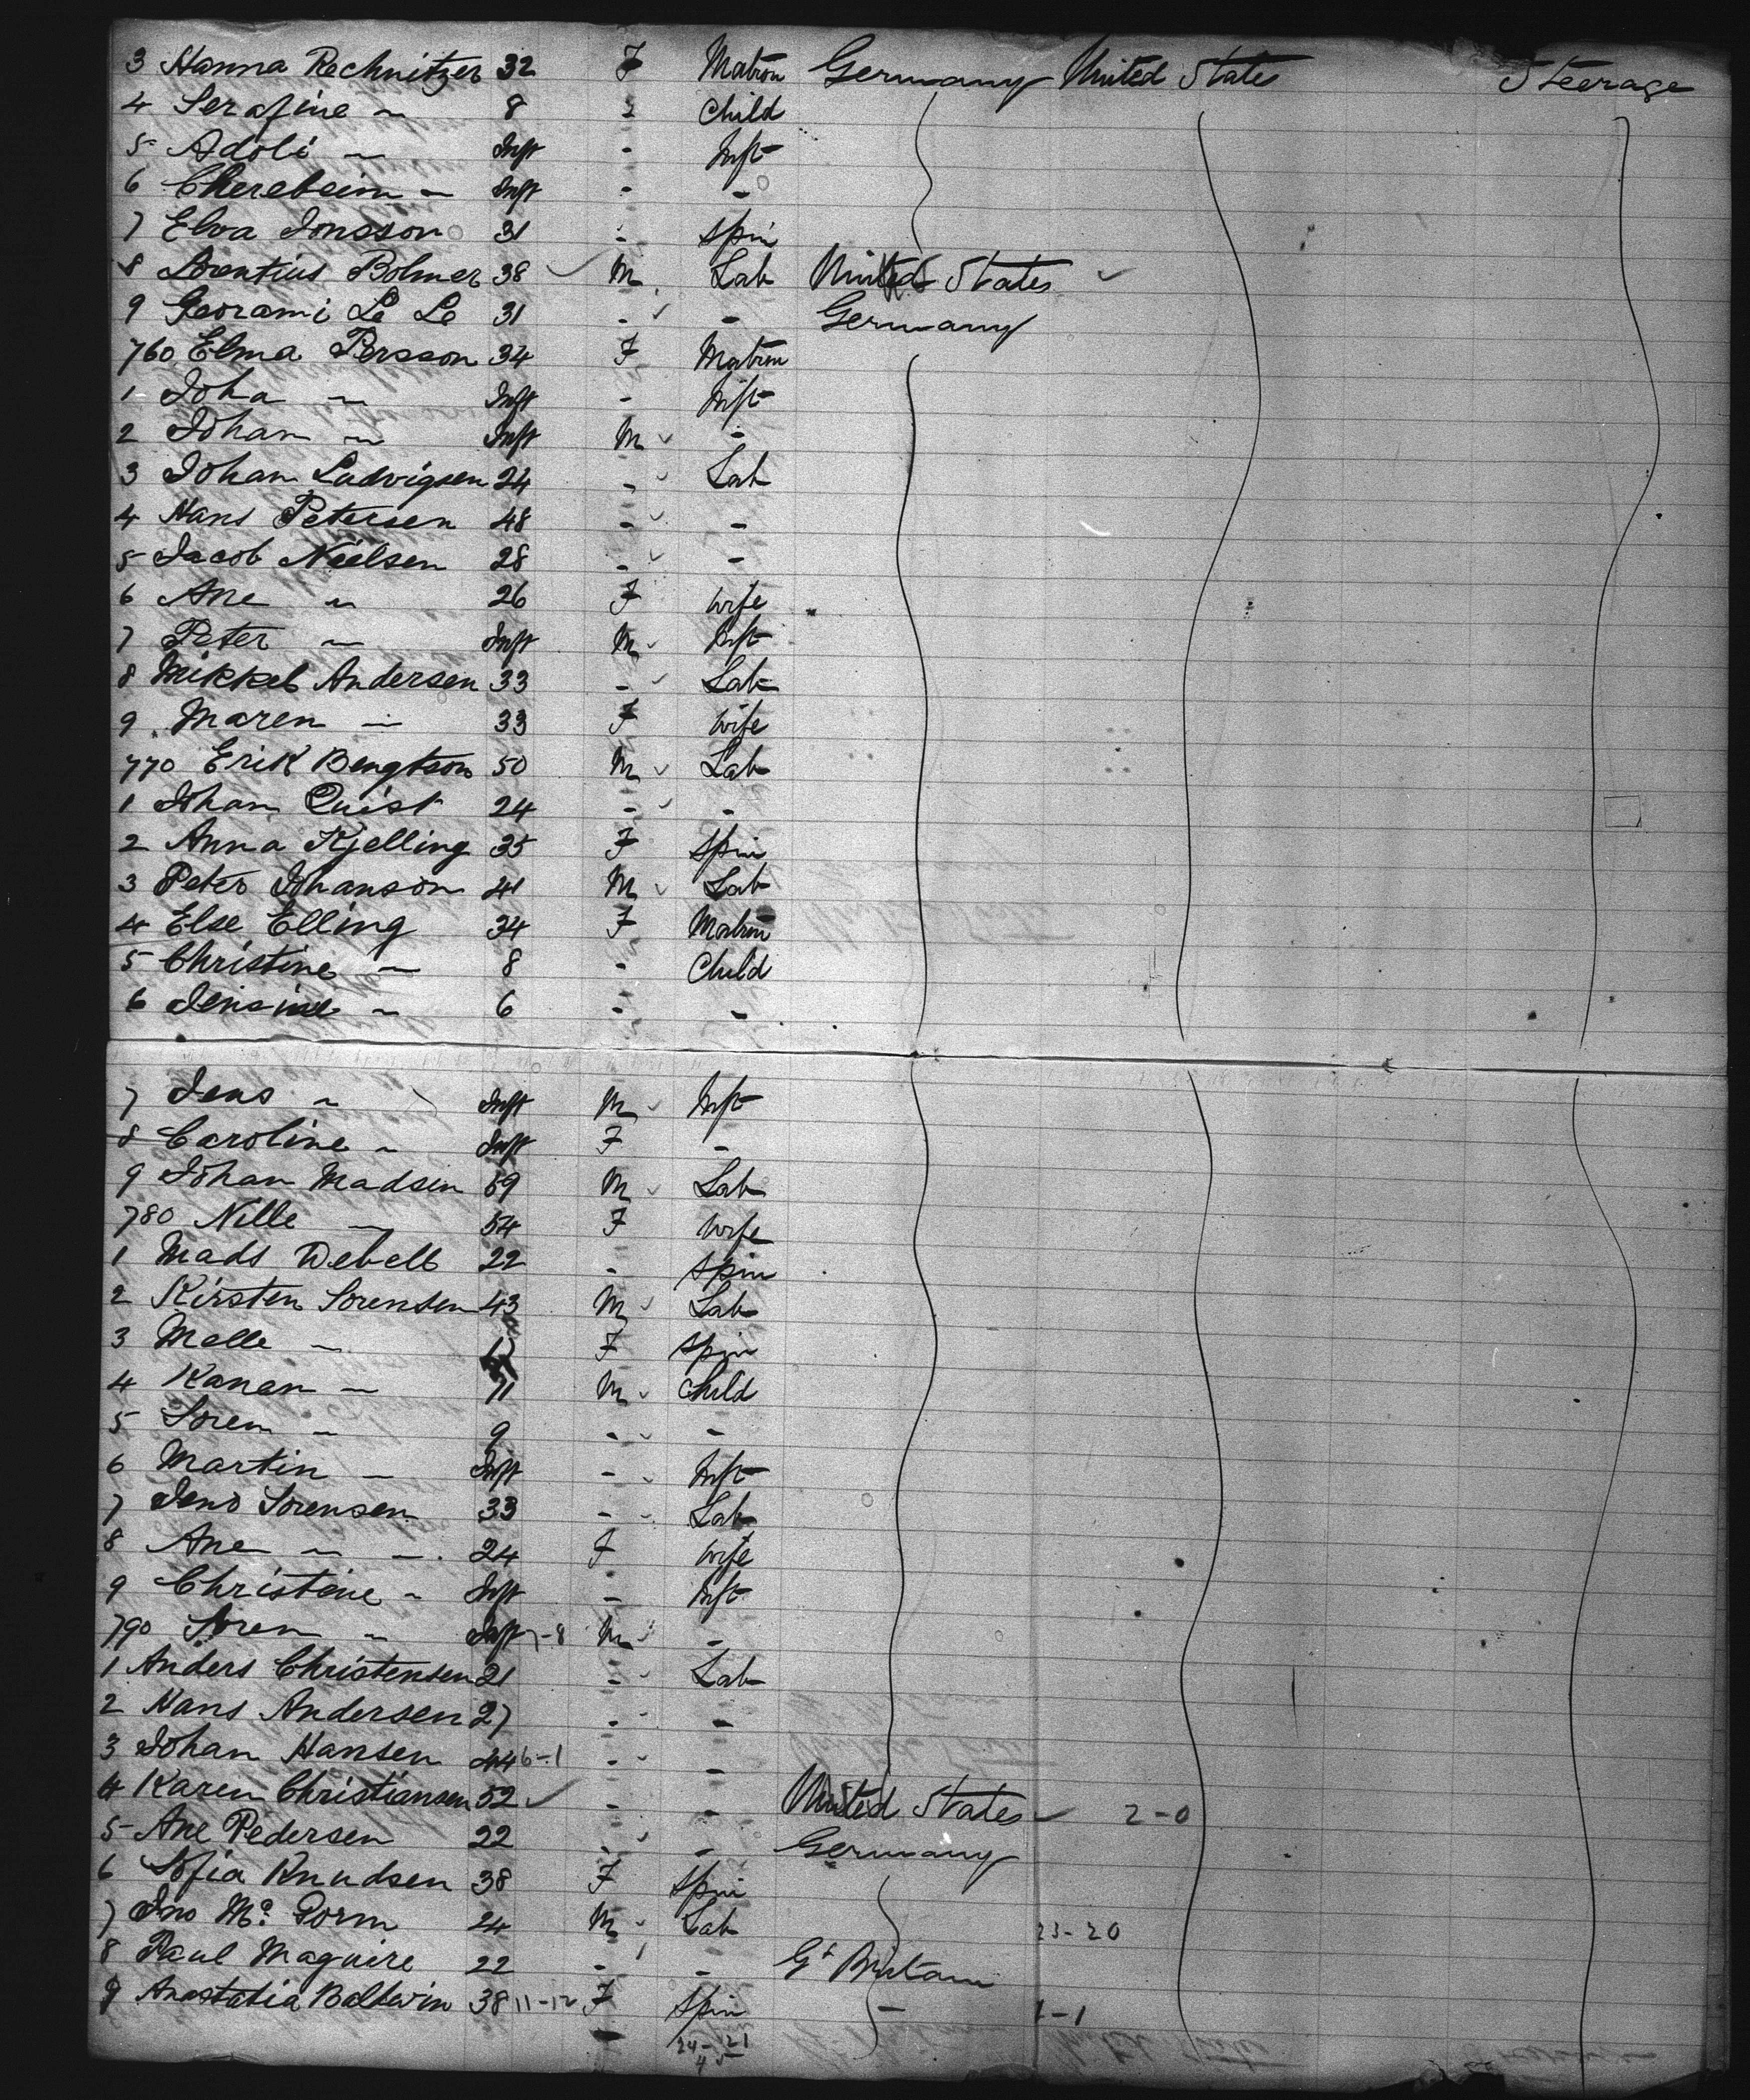 3 Hanna Rechnitzer 32 F Matron Germany United States Steerage
4 Serafine " 8 - Child
5 Adoli " Inft - Inft
6 " Inft - -
7 Elva Jonsson 31 - Spin
8 Lorentius Bolmer 38 M Lab United States
9 Georami Le Le 31 - - Germany
760 Elma Persson 34 F Matron
1 Joha " Inft - Inft
2 Johan " Inft M -
3 Johan Ludvigsen 24 - Lab
4 Hans Petersen 48 - -
5 Jacob Nielsen 28 - -
6 Ane " 26 F Wife
7 Peter " Inft M Inft
8 Mikkel Andersen 33 - Lab
9 Maren " 33 F Wife
770 Erik Bengtson 50 M Lab
1 Johan Quist 24 - -
2 Anna Kjelling 35 F Spin
3 Peter Johanson 41 M Lab
4 Else Elling 34 F Matron
5 Christine " 8 - Child
6 Jensine " 6 - -
7 Jens " Inft M Inft
8 Caroline " Inft F -
9 Johan Madsen 59 M Lab
780 Nille " 54 F Wife
1 Mads Webell 22 - Spin
2 Kirsten Sorensen 43 M Lab
3 Melle " F Spin
4 Kanan " 11 M Child
5 Soren " 9 - -
6 Martin " Inft - Inft
7 Jens Sorensen 33 - Lab
8 Ane " 24 F Wife
9 Christine " Inft - Inft
790 Soren " Inft 7-8 M -
1 Anders Christensen 21 - Lab
2 Hans Andersen 27 - -
3 Johan Hansen 44 6-1 - -
4 Karen Christiansen 52 - - United States 2-0
5 Ane Pedersen 22 - - Germany
6 Sofia Knudsen 38 F Spin
7 Jno Mc Gorm 24 M Lab 23-20
8 Paul Maguire 22 - - Gt Britain
9 Anastatia Baldwin 38 11-12 F Spin - 1-1
24-21
45